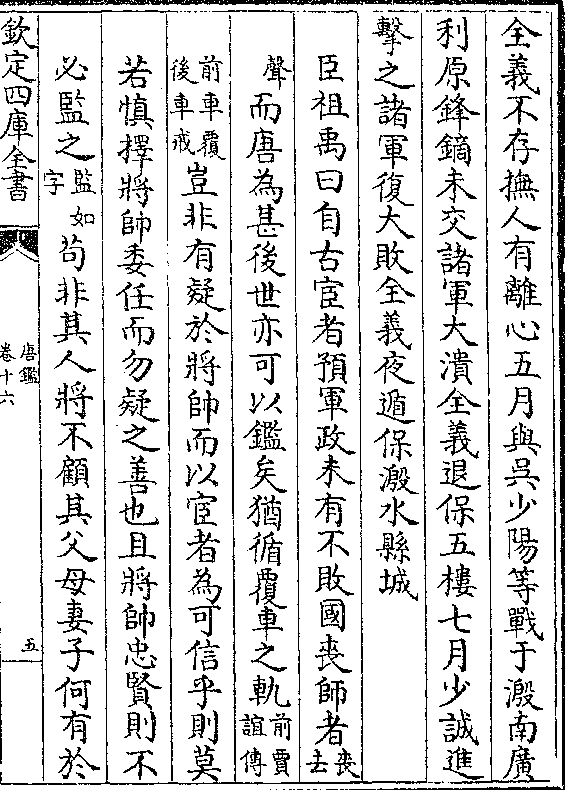 全義不存撫人有離心五月與吳少陽等戰于溵南廣
利原鋒鏑未交諸軍大潰全義退保五樓七月少誠進
擊之諸軍復大敗全義夜遁保溵水縣城
臣祖禹曰自古宦者預軍政未有不敗國喪師者喪去
聲而唐為甚後世亦可以鑑矣猶循覆車之軌前賈誼傳
前車覆後車戒豈非有疑於將帥而以宦者為可信乎則莫
若慎擇將帥委任而勿疑之善也且將帥忠賢則不
必監之監如字苟非其人將不顧其父母妻子何有於
欽定四庫全書
唐鑑
卷十六
五